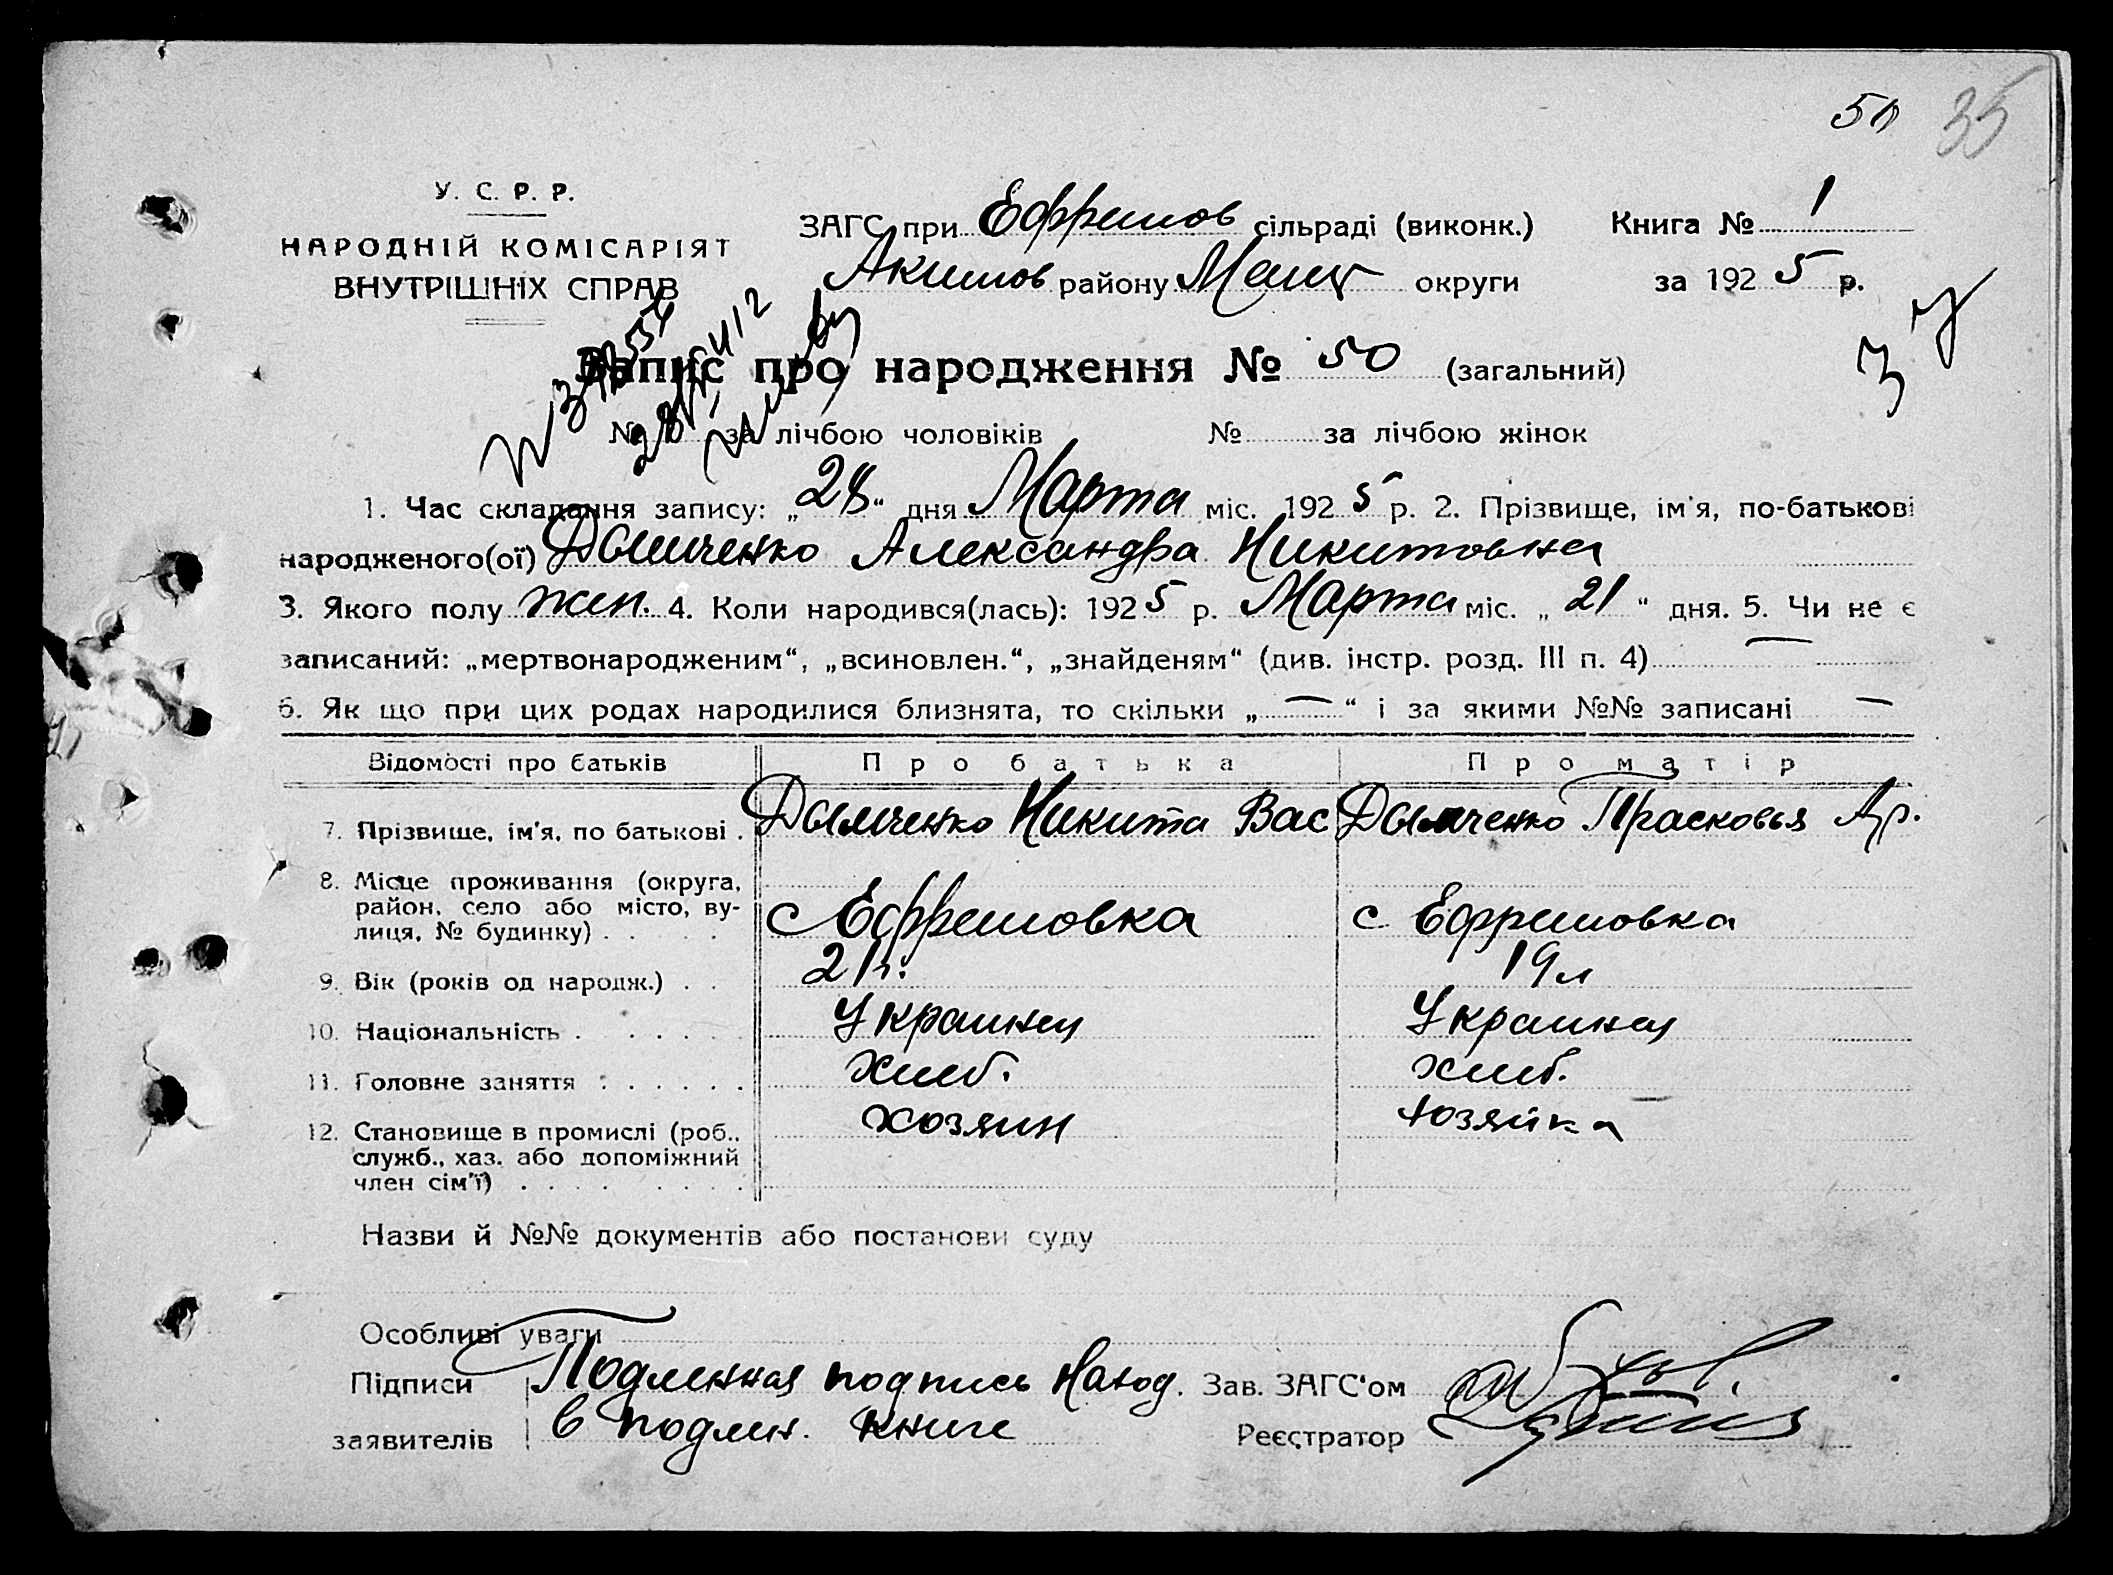 50 35
У. С. Р. Р.
НАРОДНІЙ КОМІСАРІЯТ
ВНУТРІШНІХ СПРАВ
ЗАГС при Ефремов сільраді (виконк.) Книга № 1
Акимов району Мелит округи за 1925 р.
Запис про народження № 50 (загальний)
№ за лічбою чоловіків № за лічбою жінок
1. Час складання запису: „28“ дня Марта міс. 1925 р. 2. Прізвище, ім'я, по-батькові
народженого(ої) Дымченко Александра Никитовна
3. Якого полу жен. 4. Коли народився(лась): 1925 р. Марта міс. „21“ дня. 5. Чи не є
записаний: „мертвонародженим“, „всиновлен.“, „знайденям“ (див. інстр. розд. III п. 4) —
6. Як що при цих родах народилися близнята, то скільки „—“ і за якими №№ записані —
Відомості про батьків Про батька Про матір
7. Прізвище, ім'я, по батькові . Дымченко Никита Вас Дымченко Прасковья Ар.
8. Місце проживання (округа,
район, село або місто, ву-
лиця, № будинку) . . . . с Ефремовка с. Ефремовка
9. Вік (років од народж.) . . 21 г. 19 л
10. Національність . . . . . . Украинец Украинец
11. Головне заняття . . . . . . хлеб. хлеб.
12. Становище в промислі (роб..
служб., хаз. або допоміжний
член сім'ї) . . . . . . . . хозяин хозяйка
Назви й №№ документів або постанови суду
Особливі уваги
Підписи Подлинная подпись наход. Зав. ЗАГС'ом
заявителів в подлин. книге Реєстратор